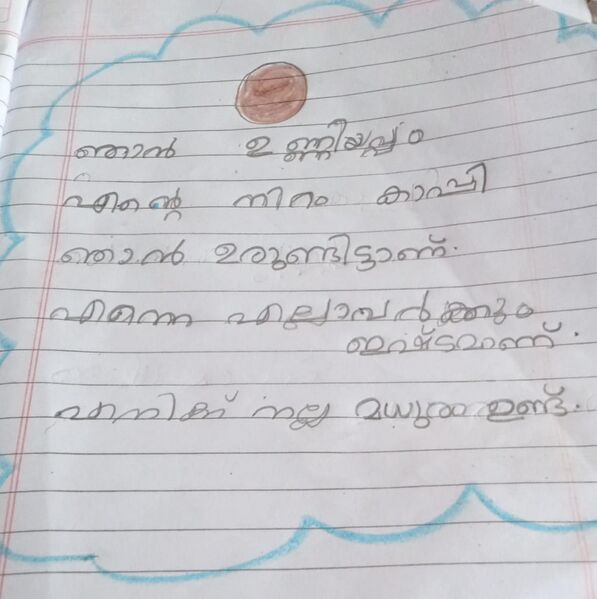 ഞാൻ ഉണ്ണിയപ്പം
എന്റെ നിറം കാപ്പി
ഞാൻ ഉരുണ്ടിട്ടാണ്.
എന്നെ എല്ലാവർക്കും
ഇഷ്ടമാണ്.
എനിക്ക് നല്ല മധുരം ഉണ്ട്.